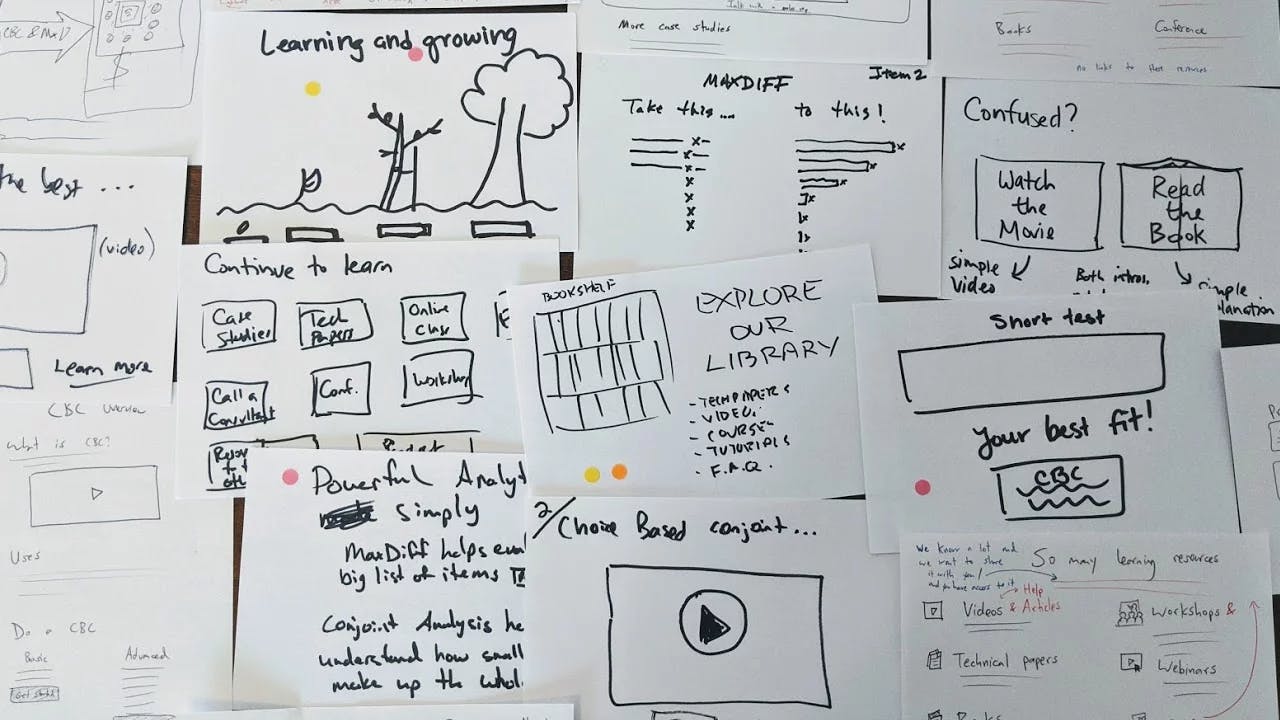 CBC & MaxD
$
Learning and growing
More case studies
MAXDIFF
Item 2
Take this....
to this!
Books
Conference
no links to these resources
Confused?
Watch
the
Movie
Read
the
Book
simple
video
Both intros.
simple
the best ...
(video)
Learn more
Continue to learn
Case
Studies
Tech
Papers
Online
Class
Call a
Consultant
Conf.
Workshop
BOOKSHELF
EXPLORE
OUR
LIBRARY
- TECHPAPERS
- VIDEO.
- COURSE
- TUTORIALS
- F.A.Q.
Short test
your best fit!
CBC
CBC Overview
What is CBC?
Uses
Do a CBC
Basic
Advanced
Get started
Powerful Analyt
simply
MaxDiff helps eval
big list of items
Conjoint Analysis he
understand how small
make up the whol
2/
Choice Based conjoint...
We know a lot and
we want to share
it with you/
and you have access to it
So many learning resources
Help
Videos & Articles
Workshops &
Technical papers
Webinars
Books